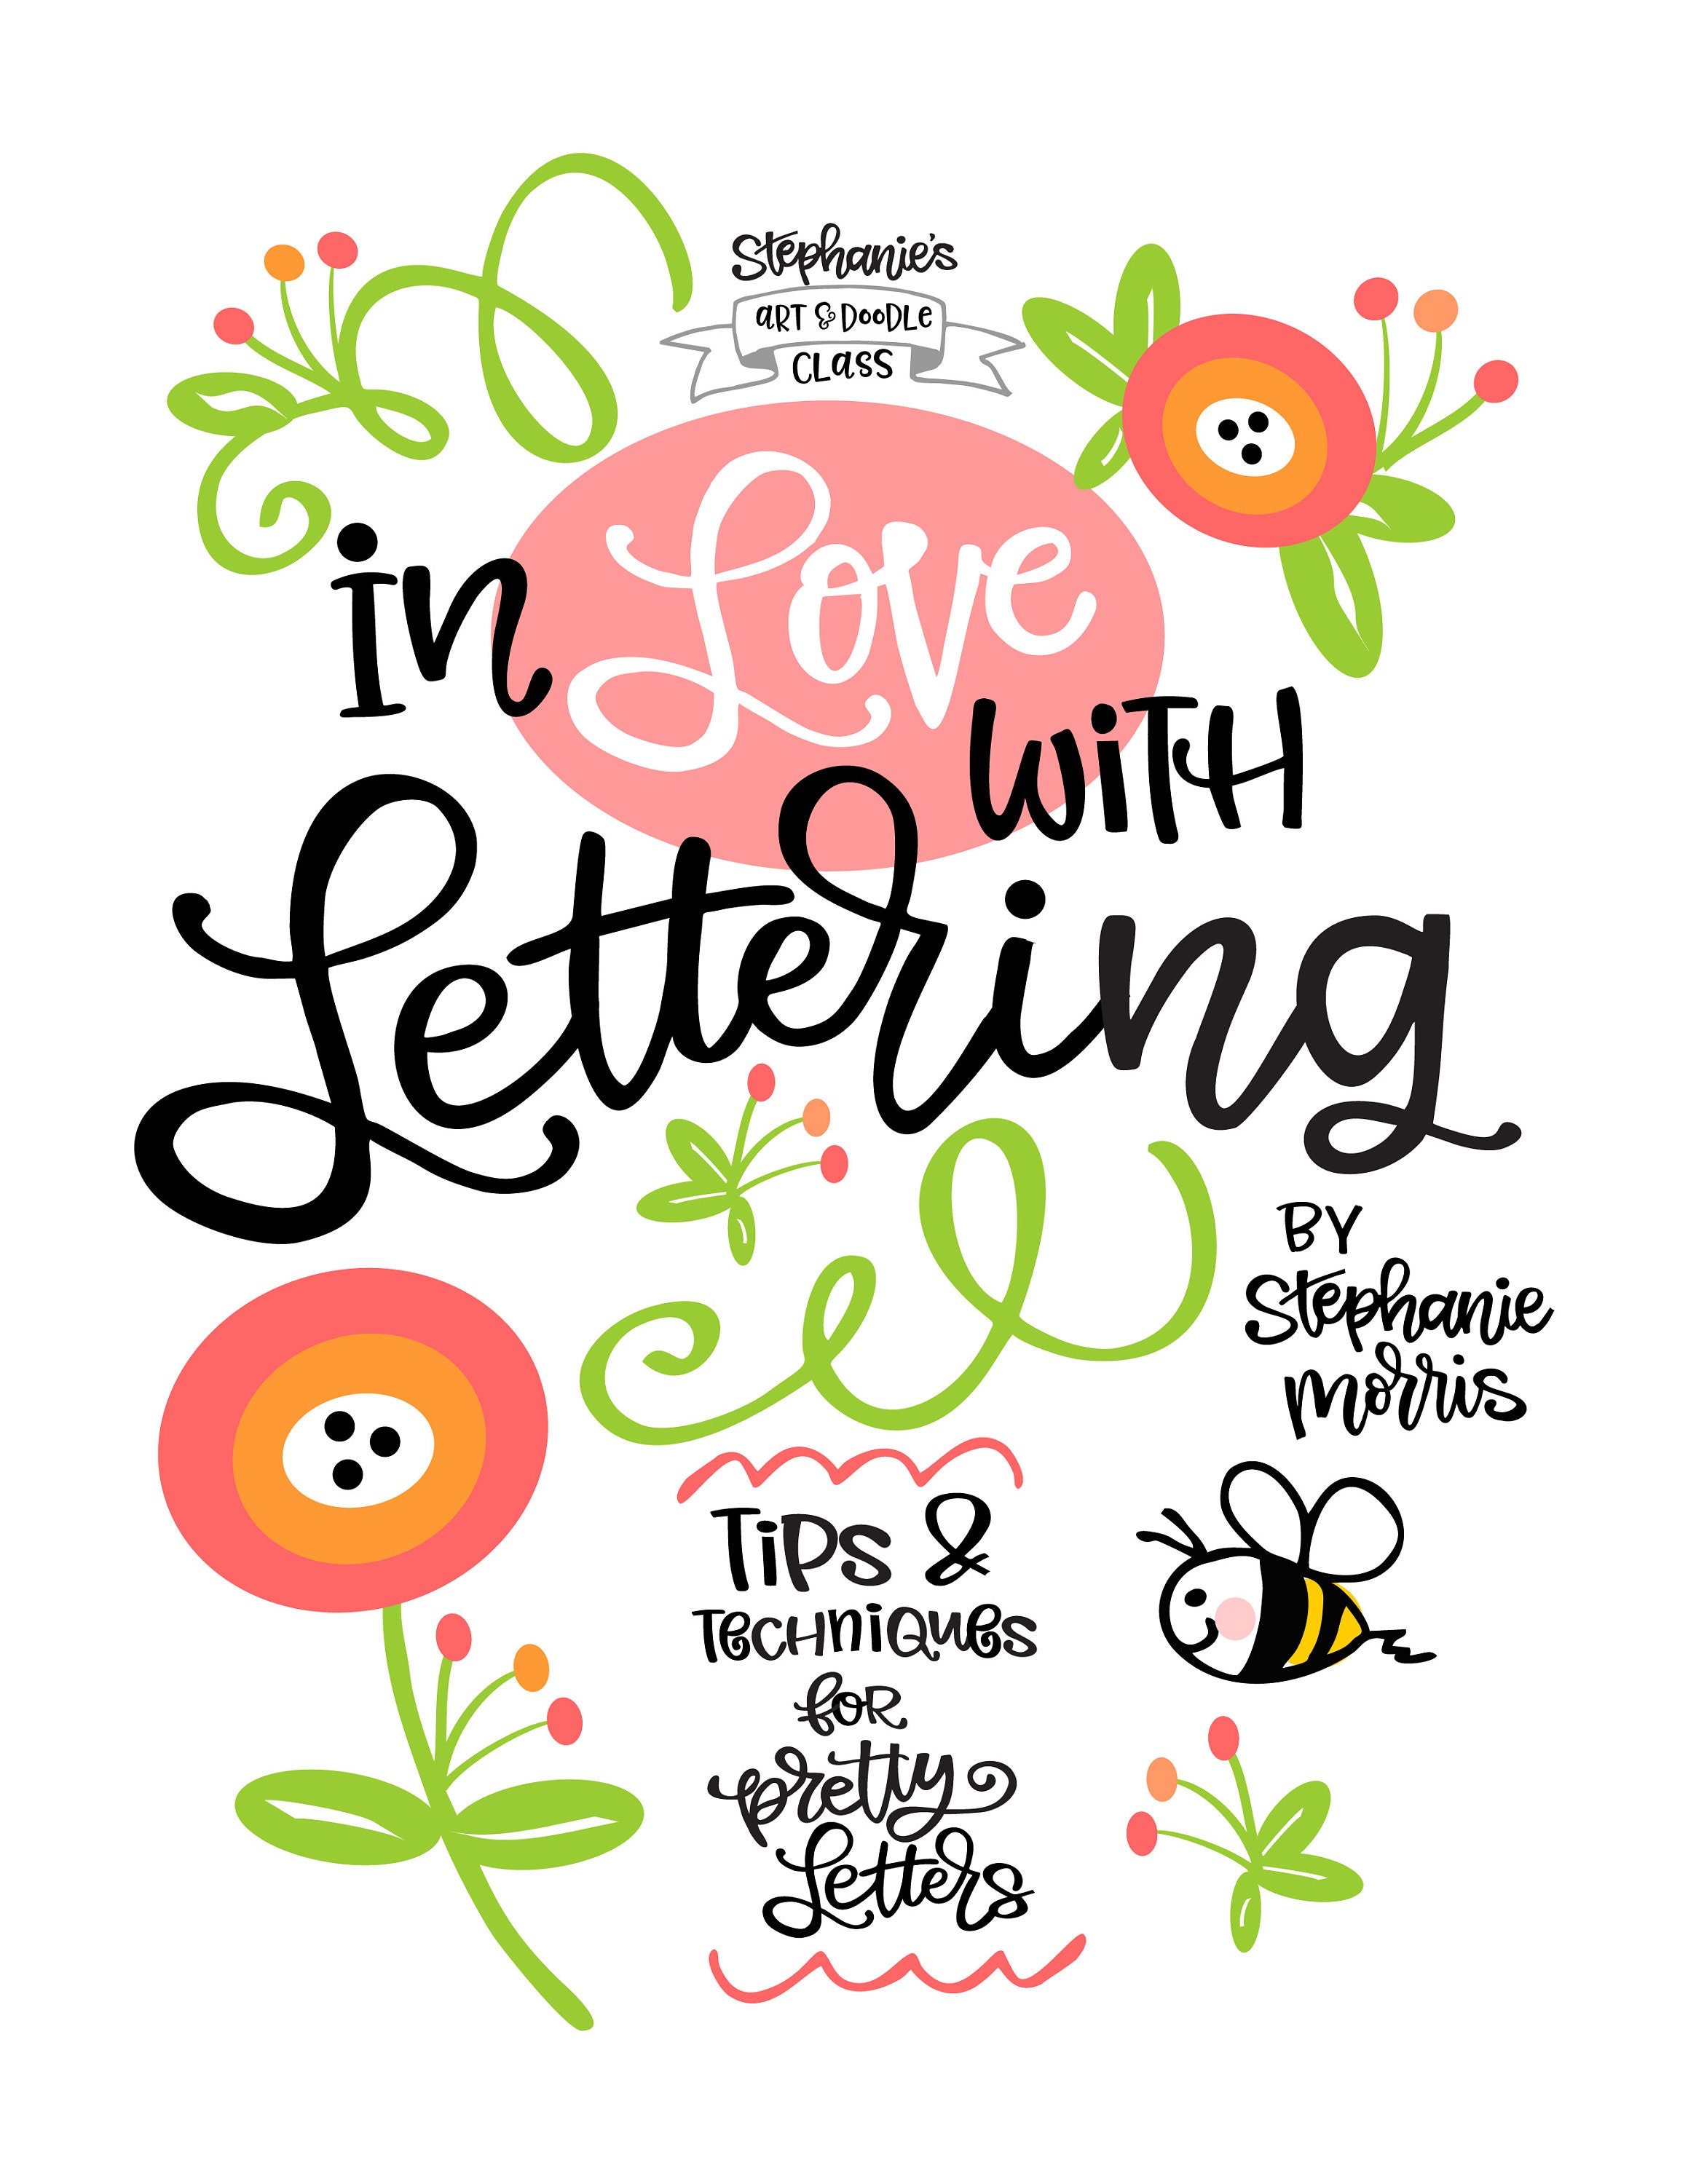 Stephanie's
ART & DOODLE
CLASS
in Love with
Lettering
BY
Stephanie
Morris
Tips &
Techniques
for
Pretty
Letters